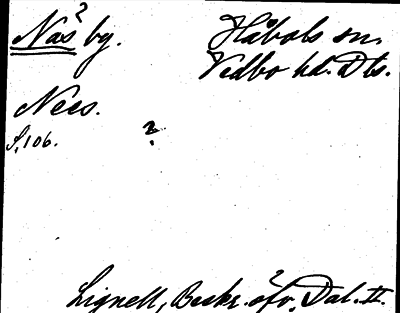 ?
Näs by.
Håbols sn.
Vedbo hd. Dls.
Nees.
S. 106.
?
Lignell, Beskr. öfv. Dal. II.